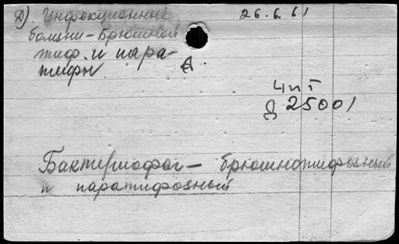 Д). Инфекционные 26.6.61
болезни - Брюшной
тиф. и пара-
тифы А.
Д 25001
Бактериофаг - брюшнотифозный
и паратифозный